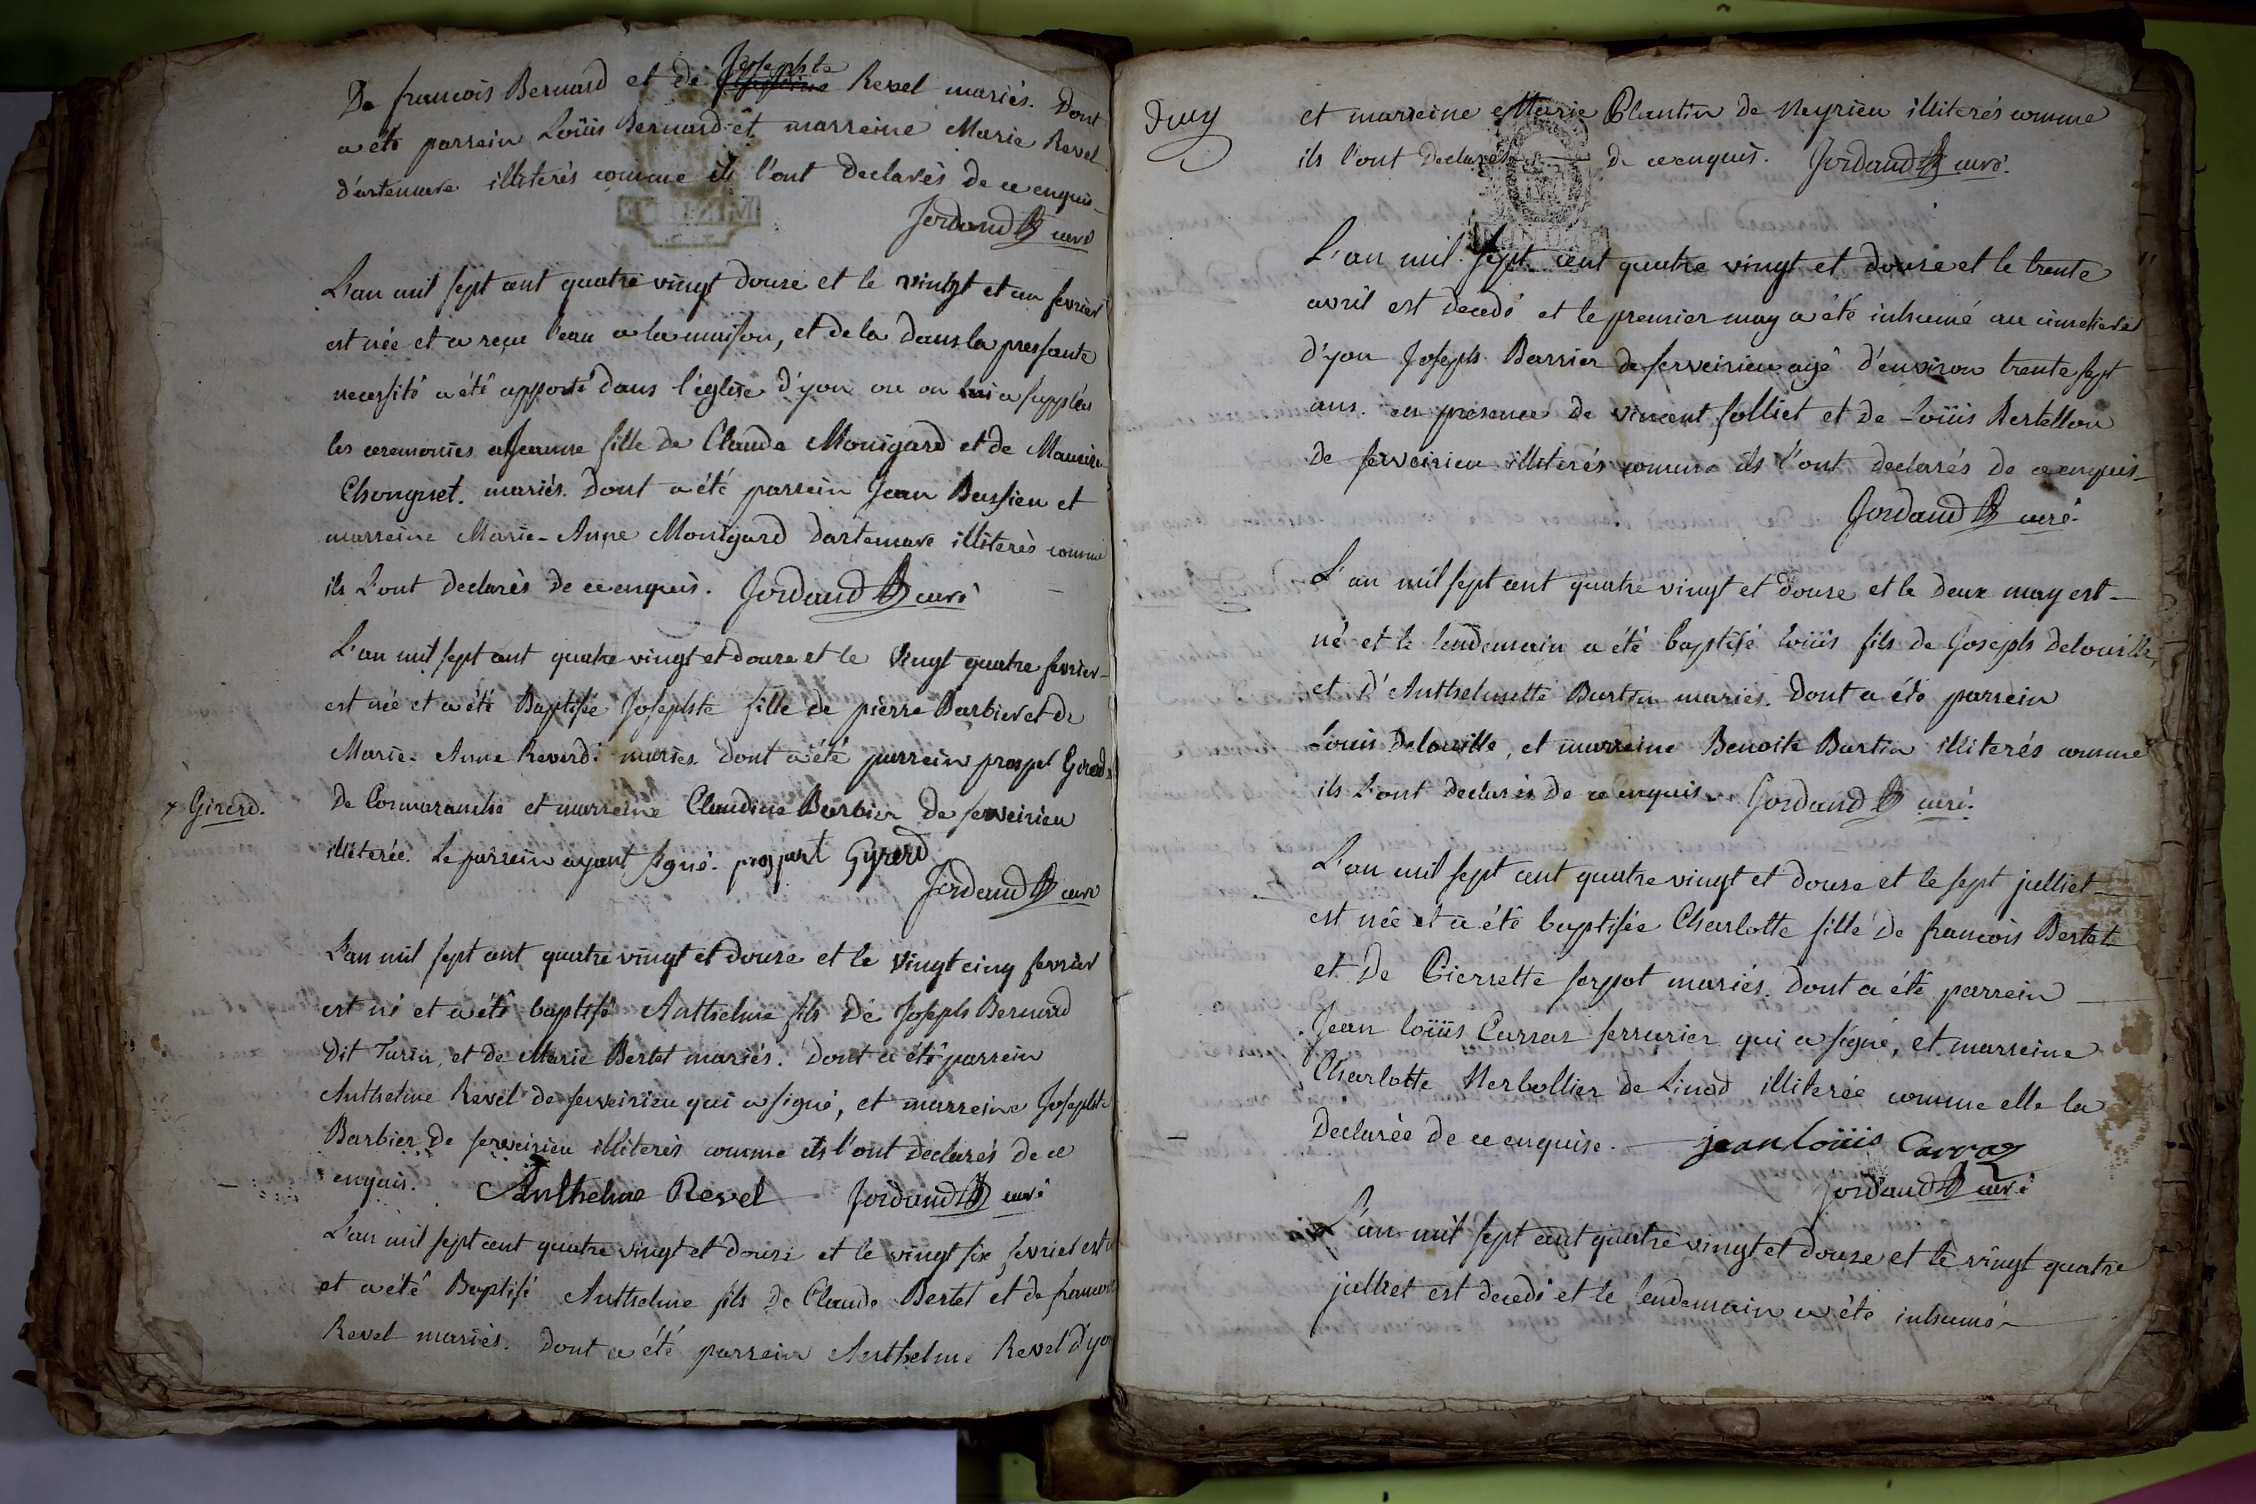 De francois Bernard et de Josephte Revel mariés. Dont
a été parrein Loüis Bernard et marreine Marie Revel
d'artemare illiterés comme ils l'ont declarés de ce enquis
Jordand curé
L'an mil sept cent quatre vingt douze et le vintgt et un fevrier
est née et a reçu l'eau a la maison, et de la dans la pressante
necessité a été apporté dans l'église d'yon ou on lui a supplées
les ceremonies a Jeanne fille de Claude Monigard et de
Chongnet. mariés. Dont a été parrein Jean Bussieu et
marreine Marie-Anne Monigard dartemare illiterés comme
ils L'ont declarés de ce enquis. Jordand curé
L'an mil sept cent quatre vingt et douze et le vingt quatre fevrier
est née et a été Baptisée Josephte fille de pierre Barbier et de
Marie-Anne Reverdi mariés. Dont a été parrein prospet Girerd
× Girerd.
de Cormaranche et marreine Claudine Barbier de serveirieu
illiterée. Le parrein ayant signé. prospart Gyrerd
Jordand curé
L'an mil sept cent quatre vingt et douze et le vingt cinq fevrier
est né et a été baptisé Anthelme fils de Joseph Bernard
dit Turin, et de Marie Bertet mariés. Dont a été parrein
Anthelme Revel de serveirieu qui a signé, et marreine Josephte
Barbier de serveirieu illiterés comme ils l'ont declarés de ce
enquis. Anthelme Revel Jordand curé
L'an mil sept cent quatre vingt et douze et le vingt six fevrier est
et a été Baptisé Anthelme fils de Claude Bertet et de
Revel mariés. Dont a été parrein Anthelme Revel d'yon
et marreine Marie Plantin de Neyrieu illiterés comme
ils l'ont declarés de ce enquis. Jordand curé.
L'an mil sept cent quatre vingt et douze et le trente
avril est decedé et le premier may a été inhumé au cimetiere
d'yon Joseph Barrier de serveirieu agé d'environ trente sept
ans. en presence de vincent folliet et de Loüis Bertellon
de serveirieu illiterés comme ils l'ont declarés de ce enquis
Jordand curé.
L'an mil sept cent quatre vingt et douze et le deux may est
né et le lendemain a été baptisé loüis fils de Joseph delouille
et d'Anthelmette Burtin mariés. Dont a été parrein
Louis Delouille, et marreine Benoite Burtin illiterés comme
ils L'ont declarés de ce enquis. Jordand curé.
L'an mil sept cent quatre vingt et douze et le sept julliet
est née et a été baptisée Charlotte fille de francois Bertet
et de Pierrette serpot mariés. Dont a été parrein
Jean loüis Carraz serrurier qui a signé, et marreine
Charlotte Herbollier de Linod illiterée comme elle la
declarée de ce enquise. jean Loüis Carraz
Jordand curé
L'an mil sept cent quatre vingt et douze et le vingt quatre
julliet est decedé et le lendemain a été inhumé